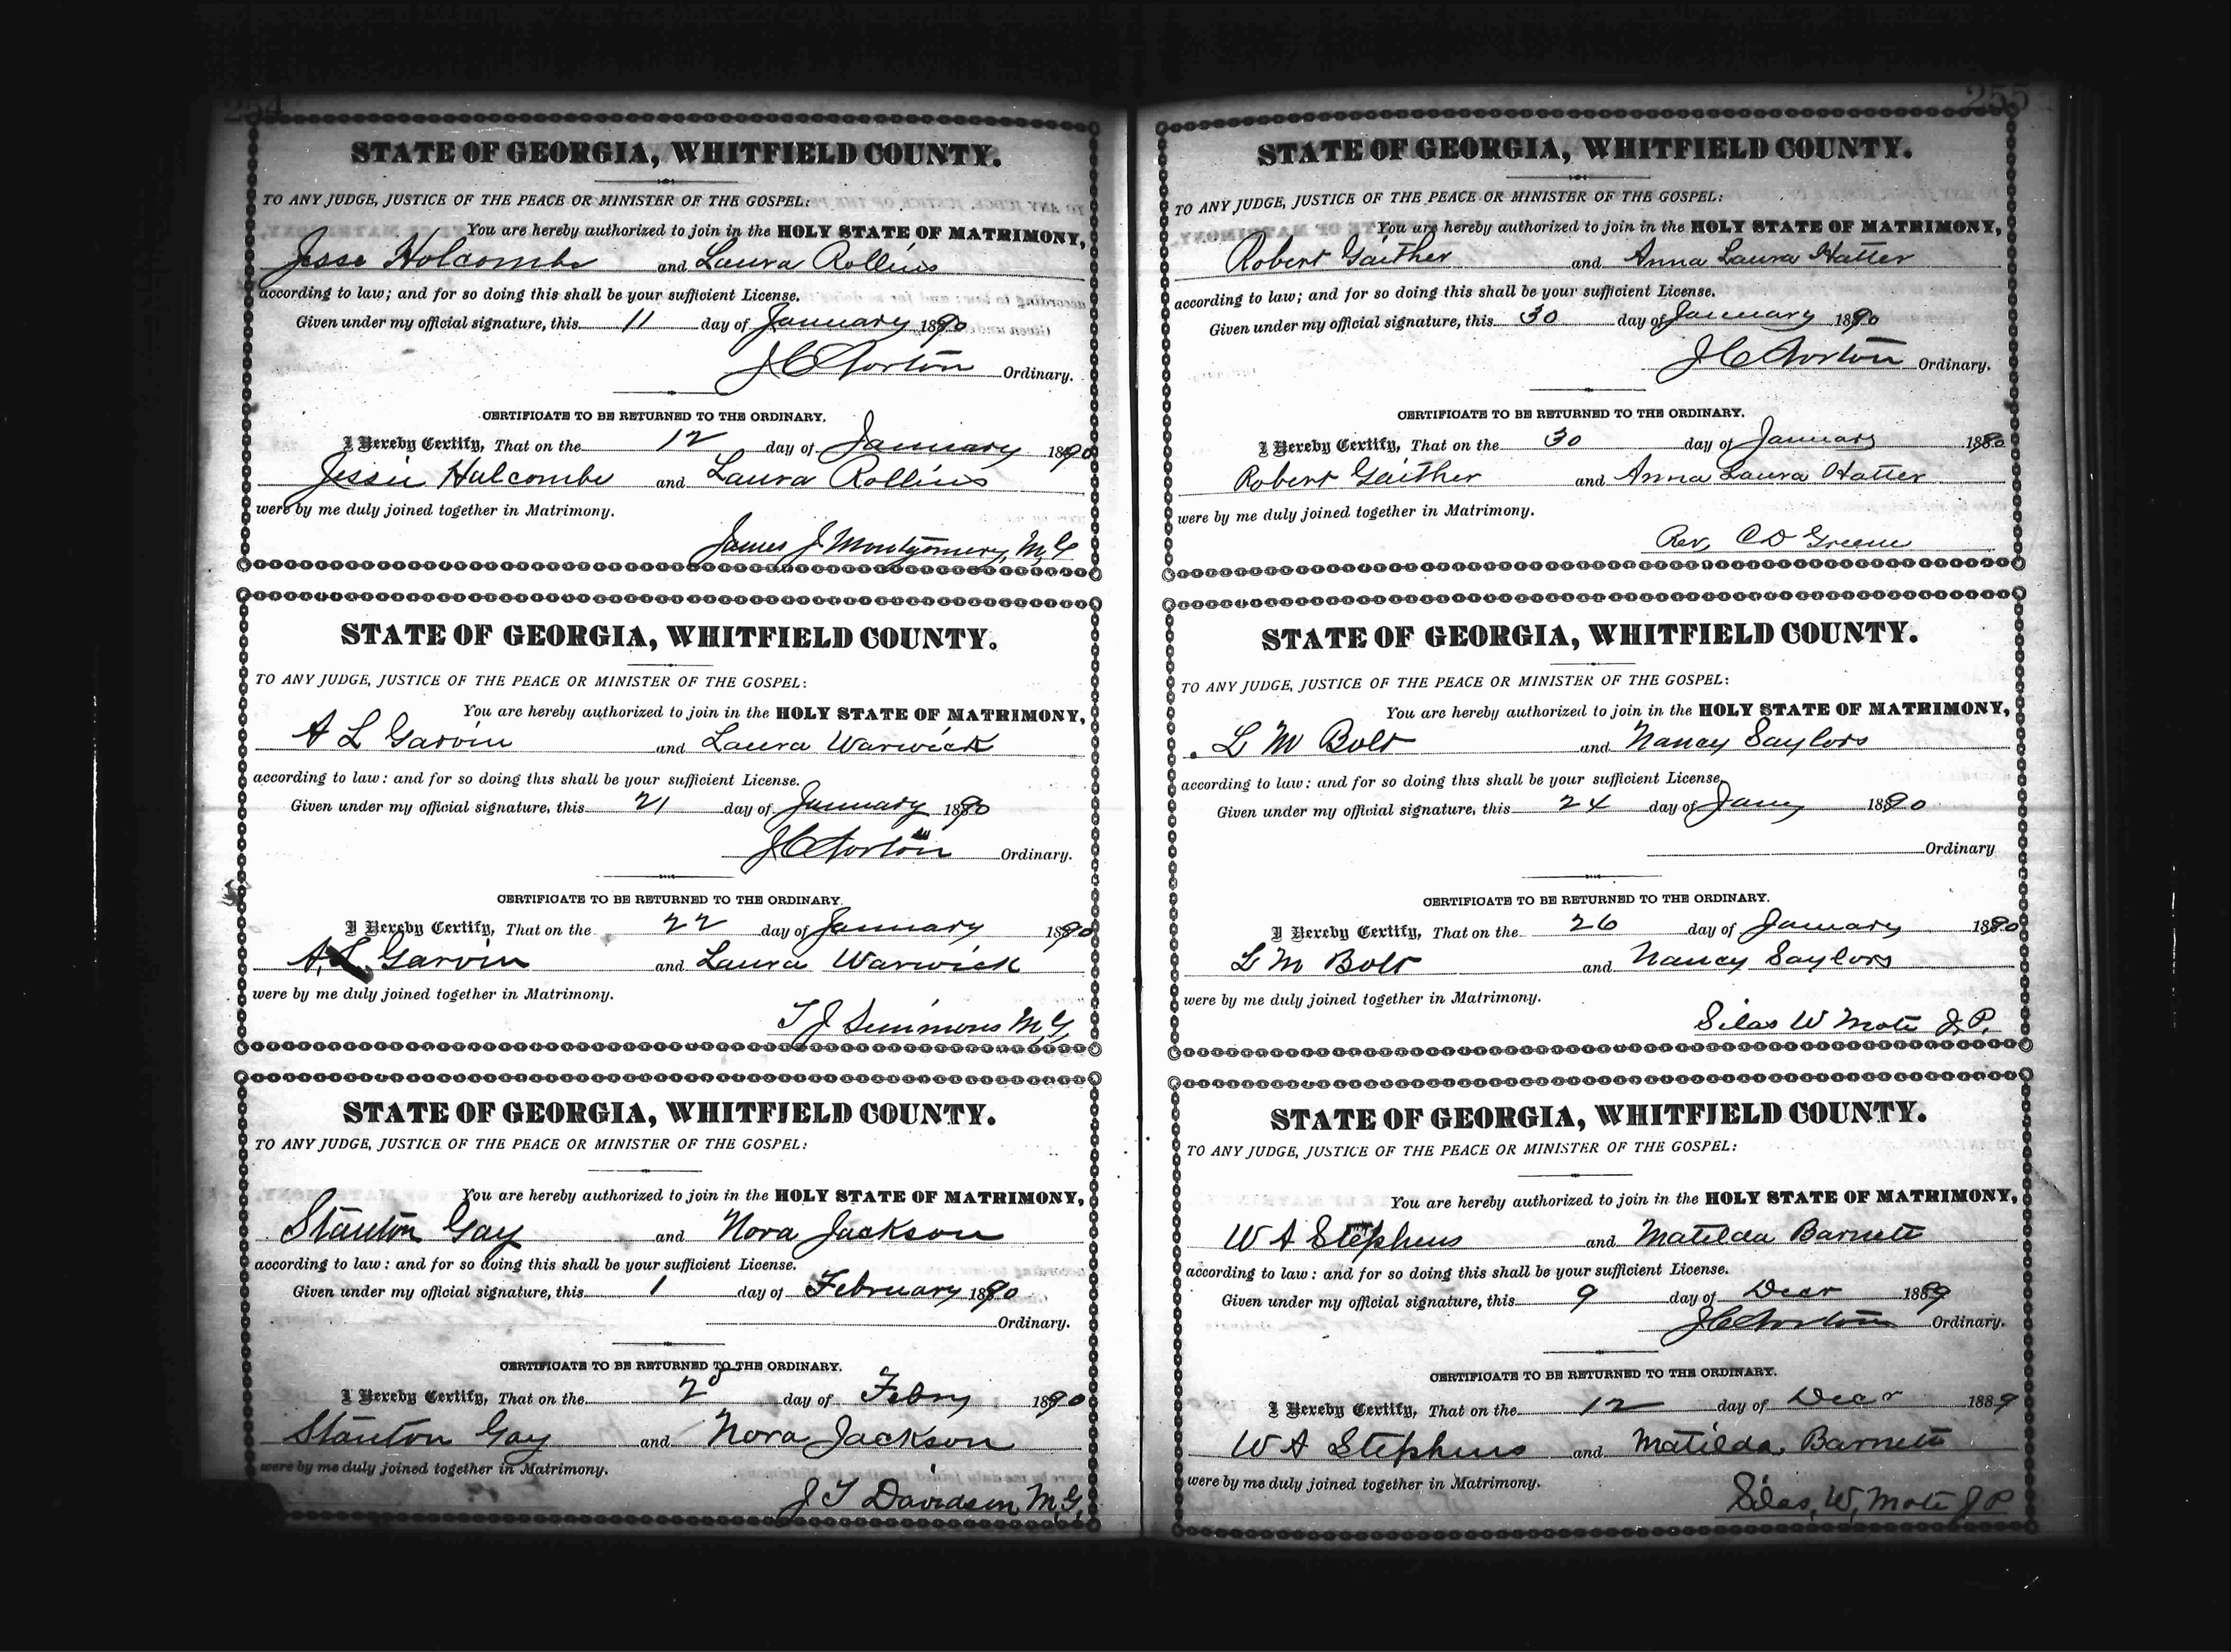 254
STATE OF GEORGIA, WHITFIELD COUNTY.
TO ANY JUDGE, JUSTICE OF THE PEACE OR MINISTER OF THE GOSPEL:
You are hereby authorized to join in the HOLY STATE OF MATRIMONY,
Jesse Holcombe and Laura Rollins
according to law; and for so doing this shall be your sufficient License.
Given under my official signature, this 11 day of January 1890
J C Norton Ordinary.
CERTIFICATE TO BE RETURNED TO THE ORDINARY.
I Hereby Certify, That on the 12 day of January 1890
Jessie Halcombe and Laura Rollins
were by me duly joined together in Matrimony.
James J Montgomery, M,G
STATE OF GEORGIA, WHITFIELD COUNTY.
TO ANY JUDGE, JUSTICE OF THE PEACE OR MINISTER OF THE GOSPEL:
You are hereby authorized to join in the HOLY STATE OF MATRIMONY,
A L Garvin and Laura Warwick
according to law: and for so doing this shall be your sufficient License.
Given under my official signature, this 21 day of January 1890
J C Norton Ordinary.
CERTIFICATE TO BE RETURNED TO THE ORDINARY.
I Hereby Certify, That on the 22 day of January 1890
A. L. Garvin and Laura Warwick
were by me duly joined together in Matrimony.
T J Simmons M,G,
STATE OF GEORGIA, WHITFIELD COUNTY.
TO ANY JUDGE, JUSTICE OF THE PEACE OR MINISTER OF THE GOSPEL:
You are hereby authorized to join in the HOLY STATE OF MATRIMONY,
Stanton Gay and Nora Jackson
according to law: and for so doing this shall be your sufficient License.
Given under my official signature, this 1 day of February 1890
Ordinary.
CERTIFICATE TO BE RETURNED TO THE ORDINARY.
I Hereby Certify, That on the 2 day of Febry 1890
Stanton Gay and Nora Jackson
were by me duly joined together in Matrimony.
J T Davidson, M,G,
255
STATE OF GEORGIA, WHITFIELD COUNTY.
TO ANY JUDGE, JUSTICE OF THE PEACE OR MINISTER OF THE GOSPEL:
You are hereby authorized to join in the HOLY STATE OF MATRIMONY,
Robert Gaither and Anna Laura Hatter
according to law; and for so doing this shall be your sufficient License.
Given under my official signature, this 30 day of January 1890
J C Norton Ordinary.
CERTIFICATE TO BE RETURNED TO THE ORDINARY.
I Hereby Certify, That on the 30 day of January 1890
Robert Gaither and Anna Laura Hatter
were by me duly joined together in Matrimony.
Rev, C D Greene
STATE OF GEORGIA, WHITFIELD COUNTY.
TO ANY JUDGE, JUSTICE OF THE PEACE OR MINISTER OF THE GOSPEL:
You are hereby authorized to join in the HOLY STATE OF MATRIMONY,
L M Bolt and Nancy Saylors
according to law: and for so doing this shall be your sufficient License,
Given under my official signature, this 24 day of Jany 1890
Ordinary
CERTIFICATE TO BE RETURNED TO THE ORDINARY.
I Hereby Certify, That on the 26 day of January 1890
L M Bolt and Nancy Saylors
were by me duly joined together in Matrimony.
Silas W Mote J.P.
STATE OF GEORGIA, WHITFIELD COUNTY.
TO ANY JUDGE, JUSTICE OF THE PEACE OR MINISTER OF THE GOSPEL:
You are hereby authorized to join in the HOLY STATE OF MATRIMONY,
W A Stephens and Matilda Barnett
according to law: and for so doing this shall be your sufficient License.
Given under my official signature, this 9 day of Decr 1889
J C Norton Ordinary.
CERTIFICATE TO BE RETURNED TO THE ORDINARY.
I Hereby Certify, That on the 12 day of Decr 1889
W A Stephens and Matilda Barnett
were by me duly joined together in Matrimony.
Silas, W, Mote J P